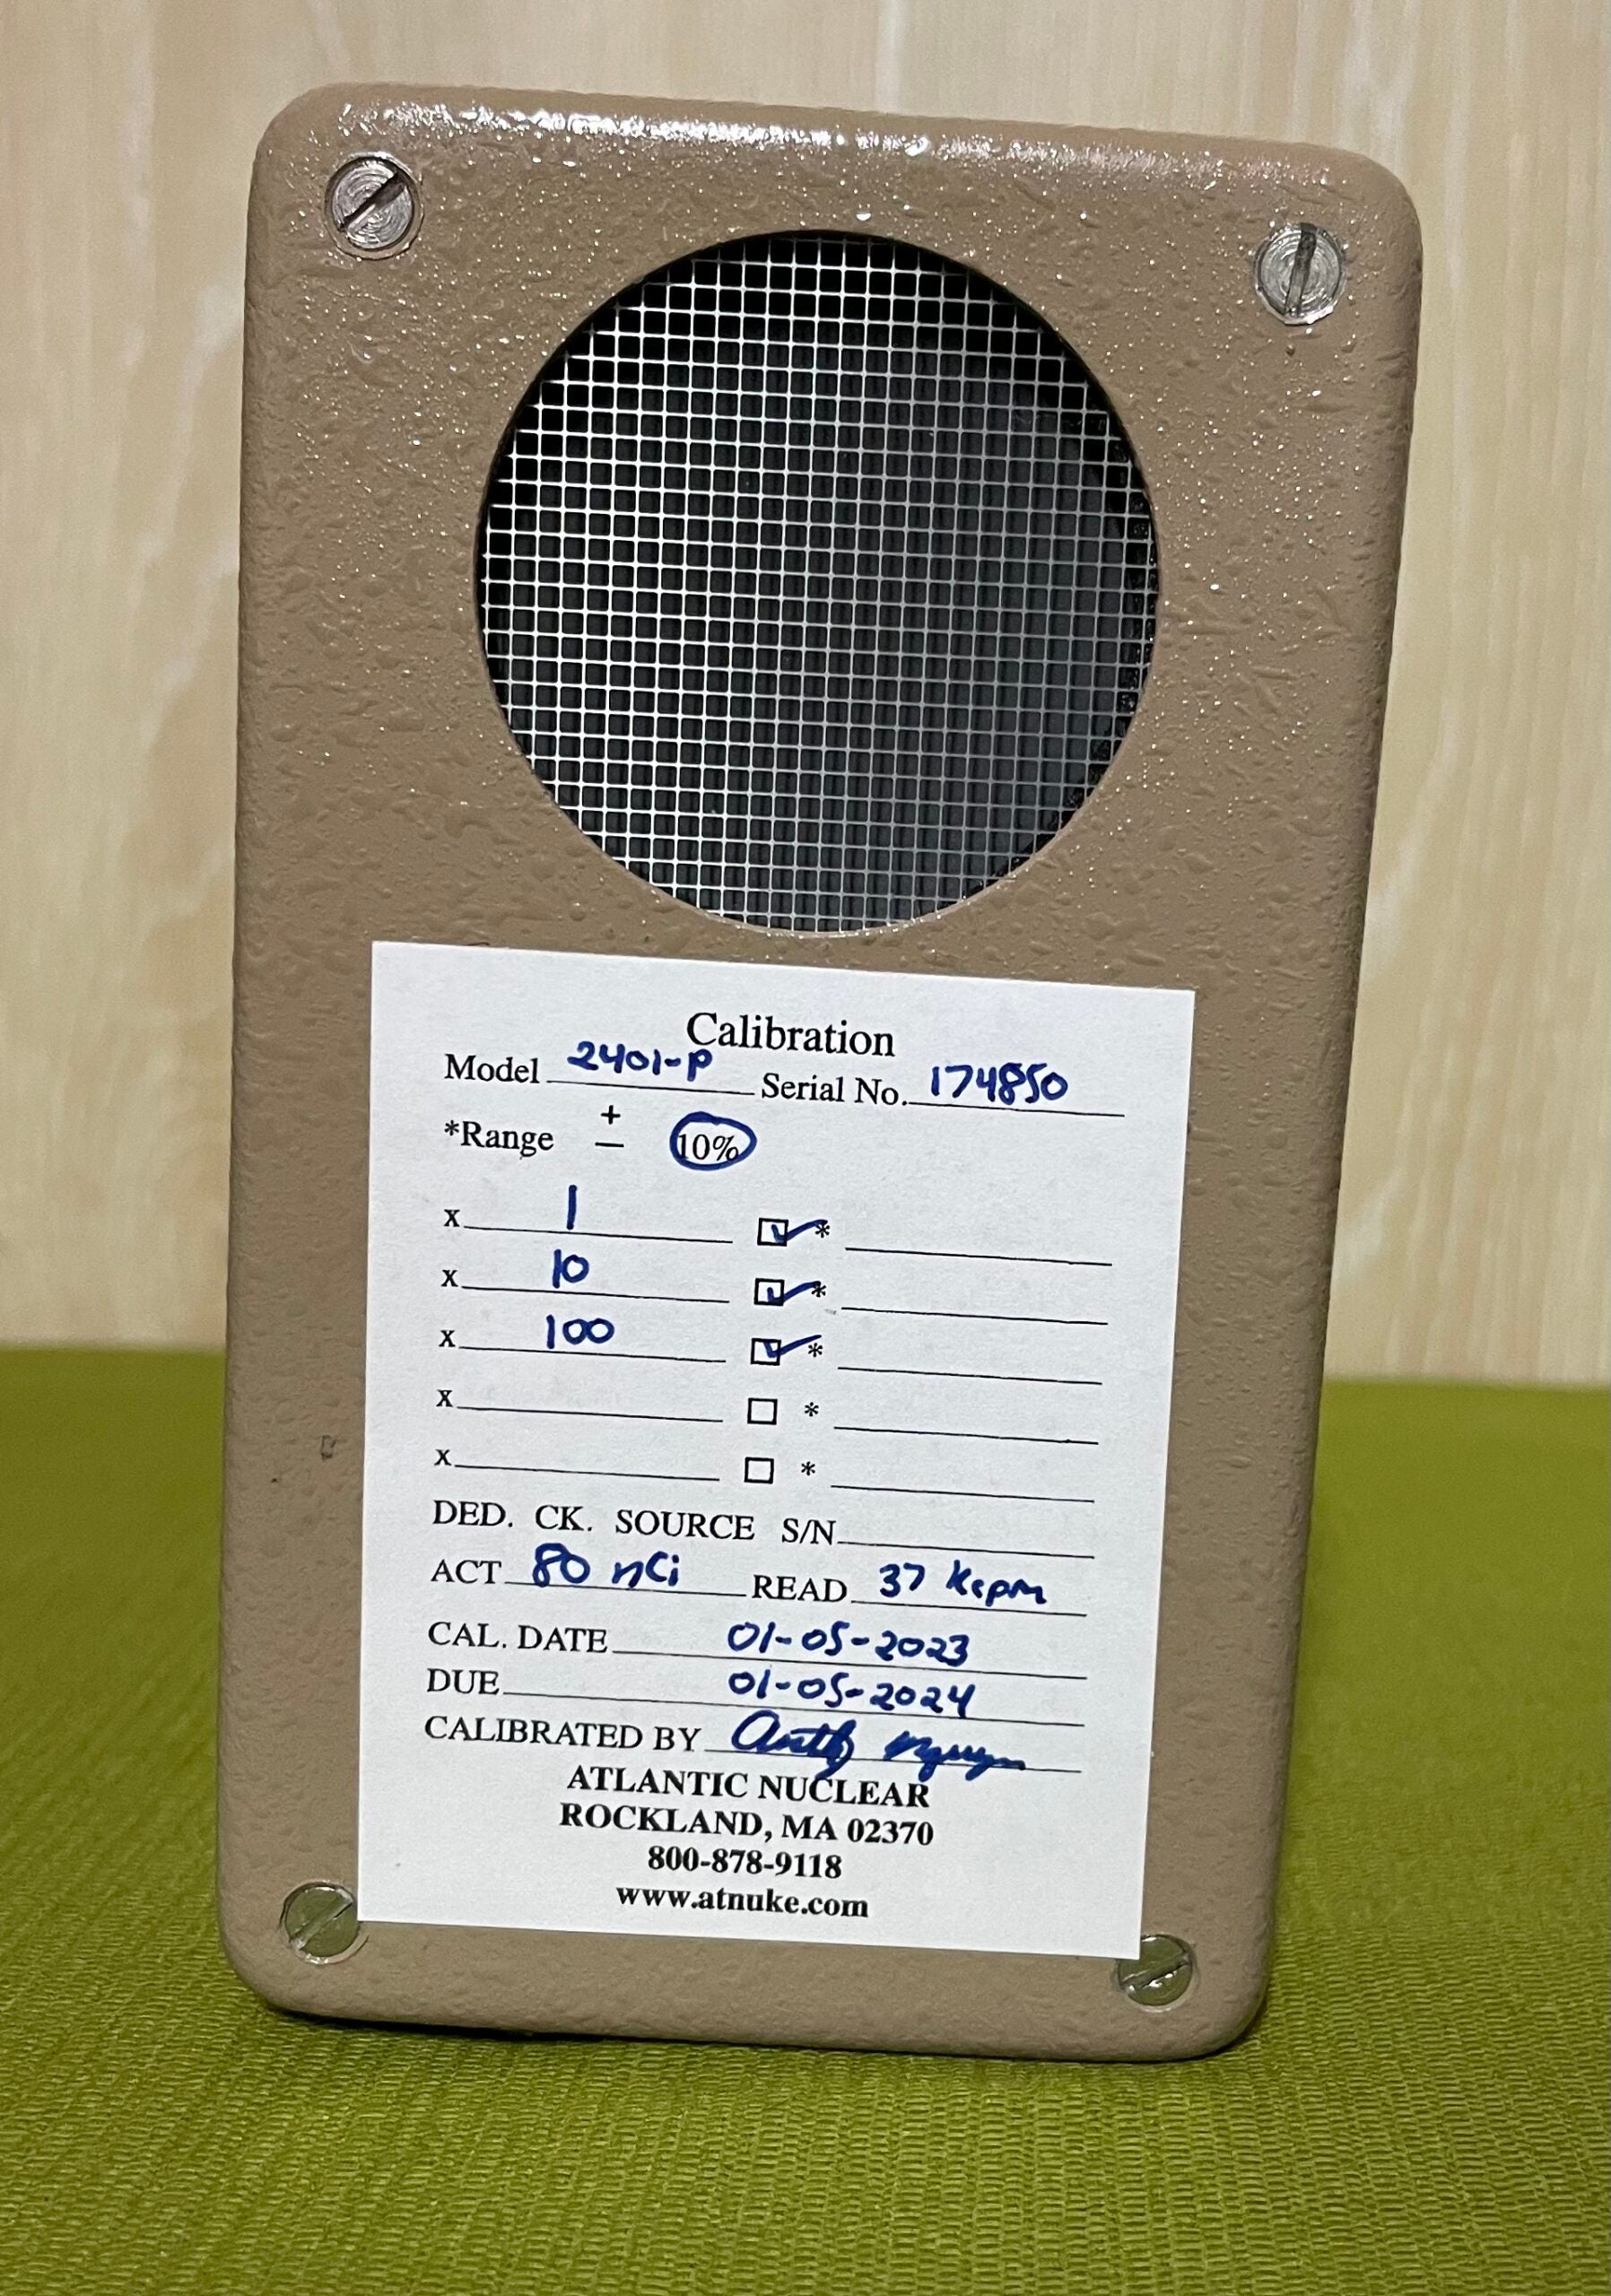 Calibration
Model 2401-P Serial No. 174850
*Range + − 10%
x 1 *
x 10 *
x 100 *
x *
x *
DED. CK. SOURCE S/N
ACT 80 nCi READ 37 Kcpm
CAL. DATE 01-05-2023
DUE 01-05-2024
CALIBRATED BY
ATLANTIC NUCLEAR
ROCKLAND, MA 02370
800-878-9118
www.atnuke.com